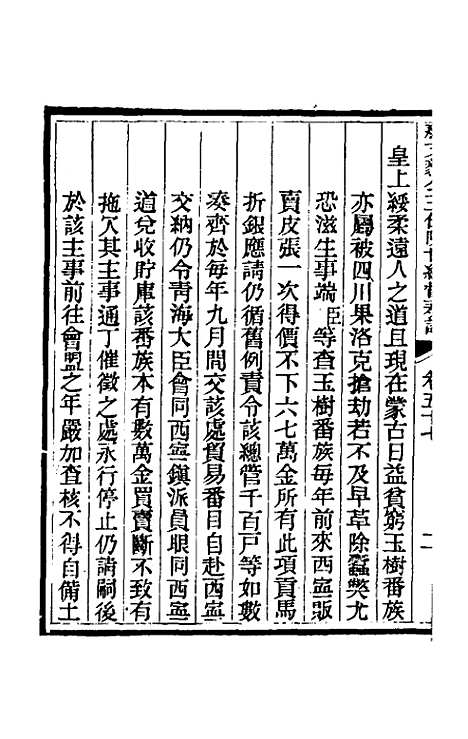 皇上綏柔遠人之道且現在蒙古日益貧窮玉樹番族
亦屬被四川果洛克搶劫若不及早革除蠧獘尤
恐滋生事端臣等查玉樹番族每年前來西寧販
賣皮張一次得價不下六七萬金所有此項貢馬
折銀應請仍循舊例責令該總管千百戶等如數
湊齊於每年九月間交該處貿易番目自赴西寧
交納仍令青海大臣會同西寧鎮派員眼同西寧
道兌收貯庫該番族本有數萬金買賣斷不致有
拖欠其主事通丁催徵之處永行停止仍請嗣後
於該主事前往會盟之年嚴加查核不得自備土
卷五十七
二